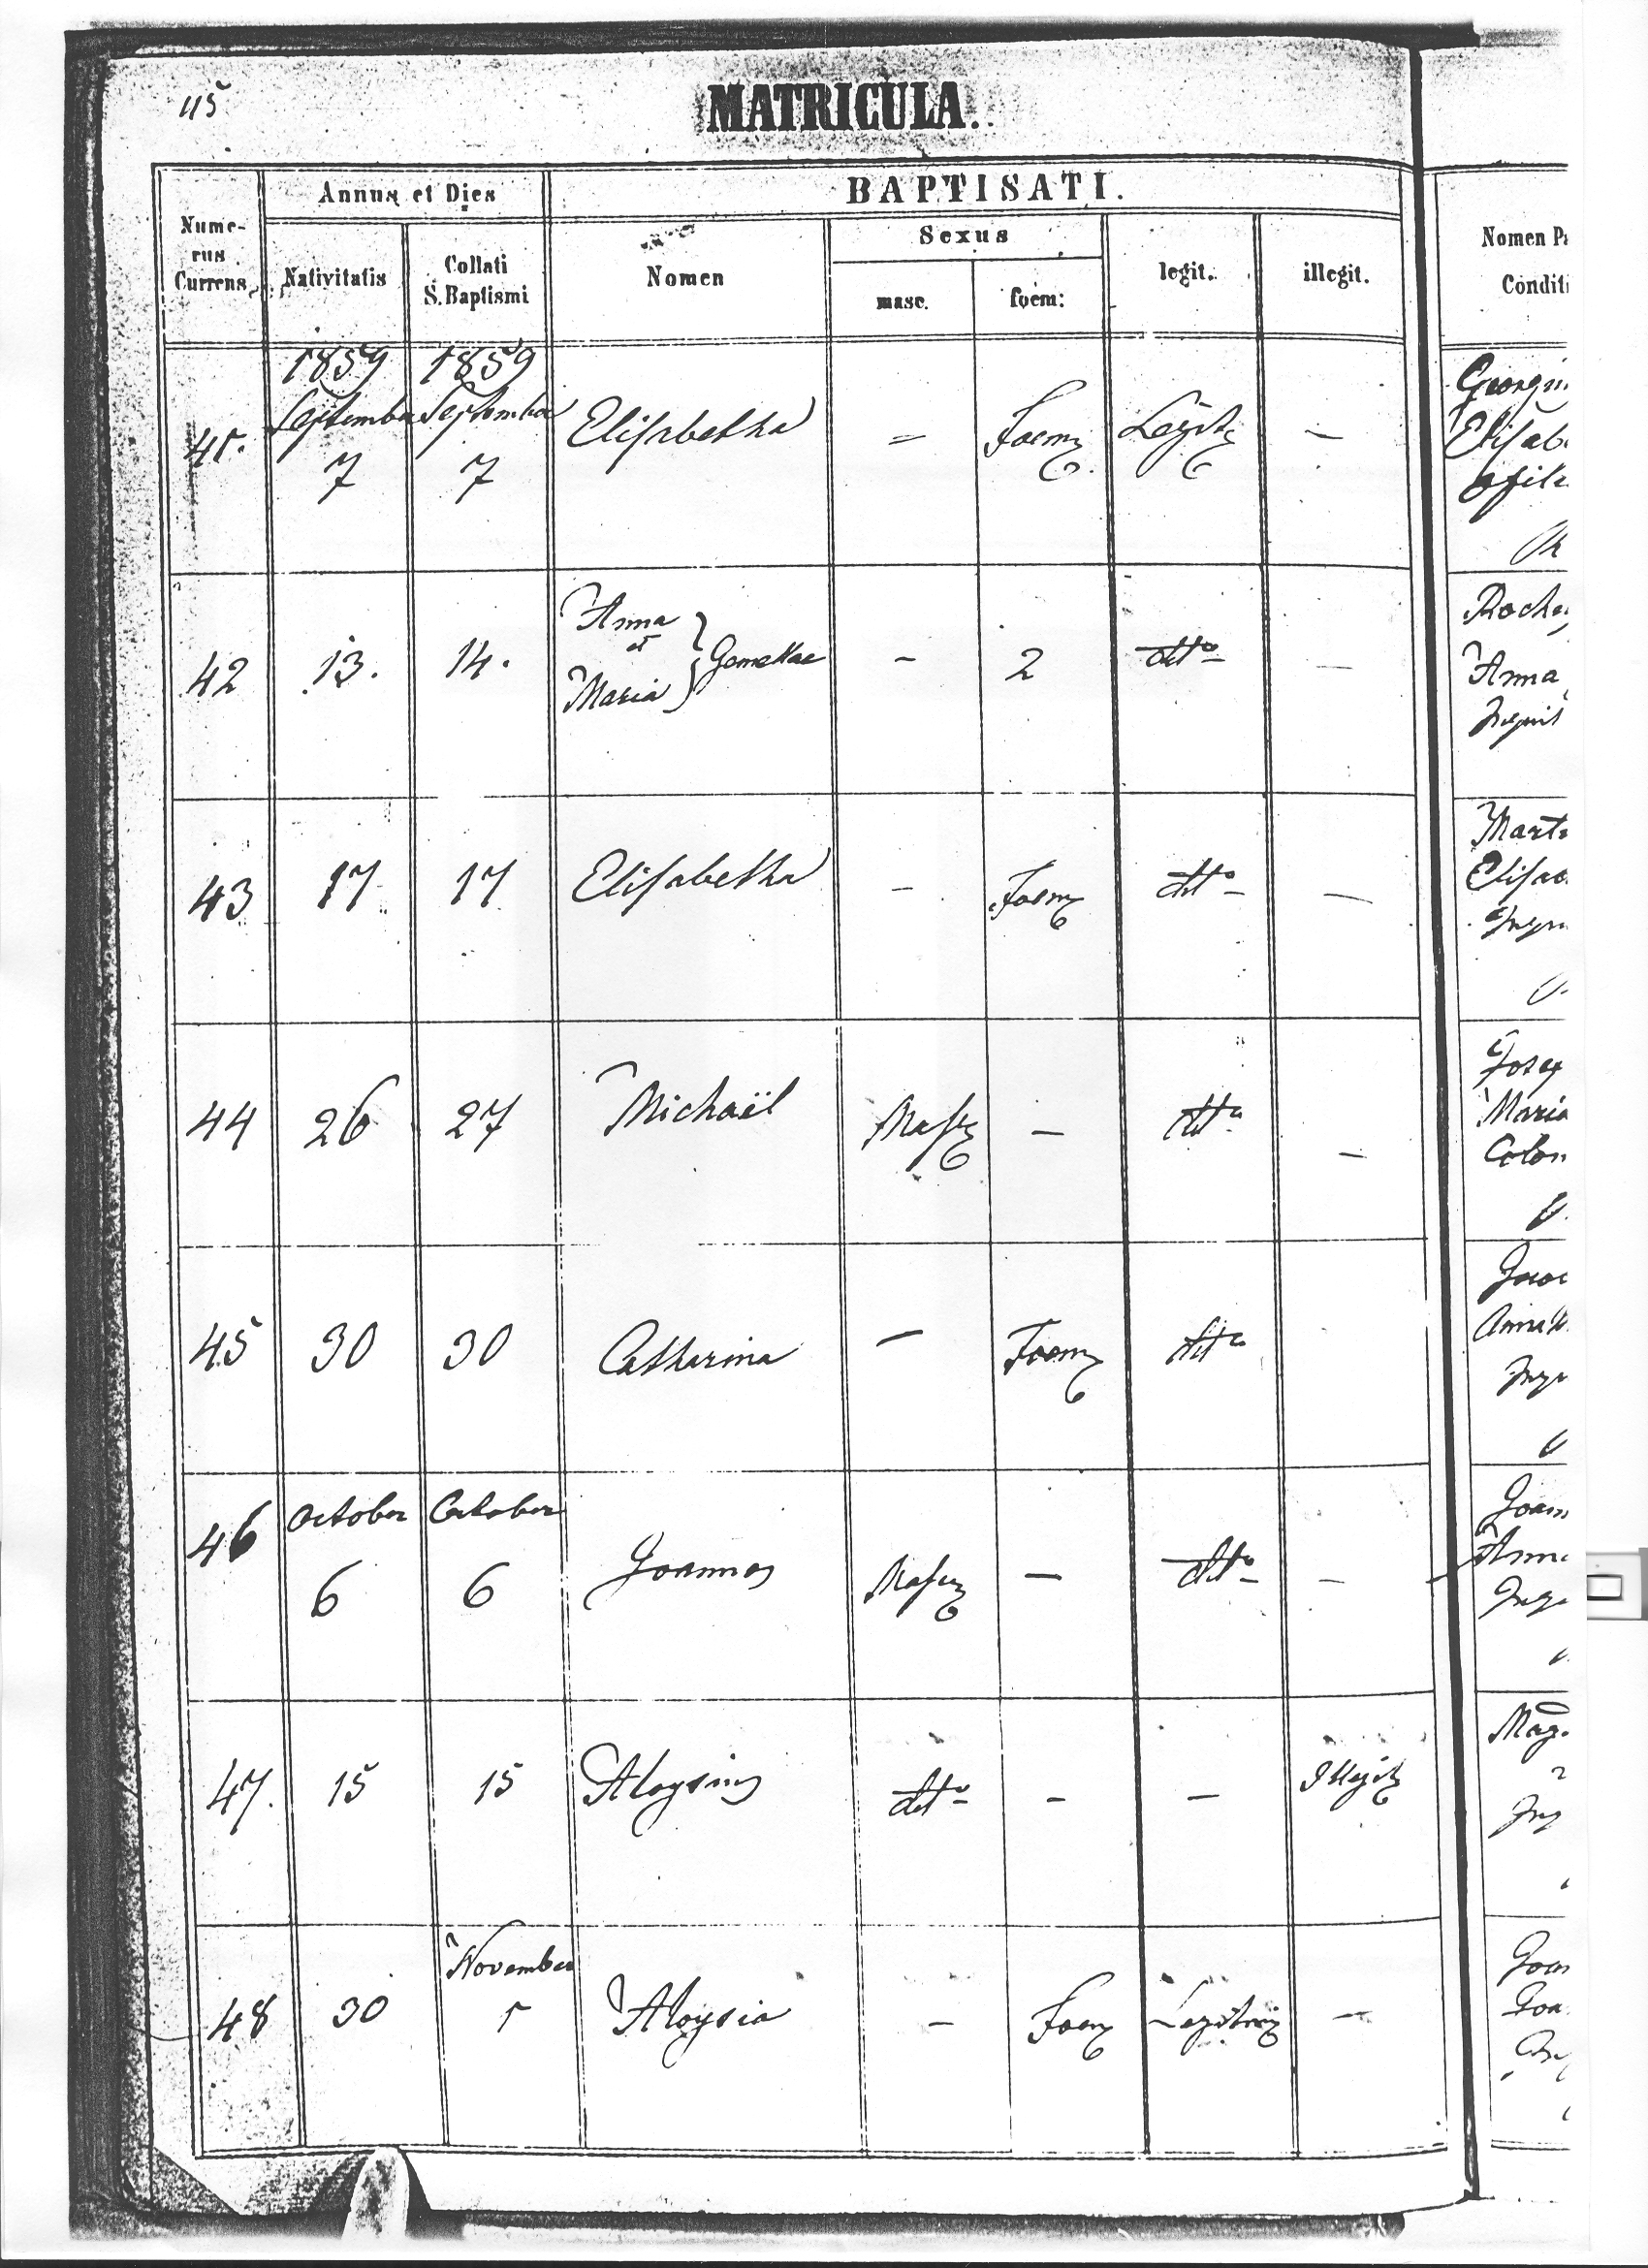 115
MATRICULA.
Numerus Currens
Annus et Dies
Nativitatis
Collati S. Baptismi
BAPTISATI.
Nomen
Sexus
masc.
foem:
legit.
illegit.
Nomen Pa
Condit
1859 1859
41. September 7 September 7 Elisabetha = Foem Legit —
Elisab
42 13. 14. Anna et Maria } Gemellae - 2 ditto —
Anna
43 17 17 Elisabetha - Foem ditto —
Mart
Elisa
44 26 27 Michaël Masc — ditto —
Josep
Maria
Colon
45 30 30 Catharina — Foem ditto
46 October 6 October 6 Joannes Masc — ditto —
Joan
Ann
47. 15 15 Aloysius ditto — — Illegit
Mag
48 30 November 1 Aloysia — Foem Legitim —